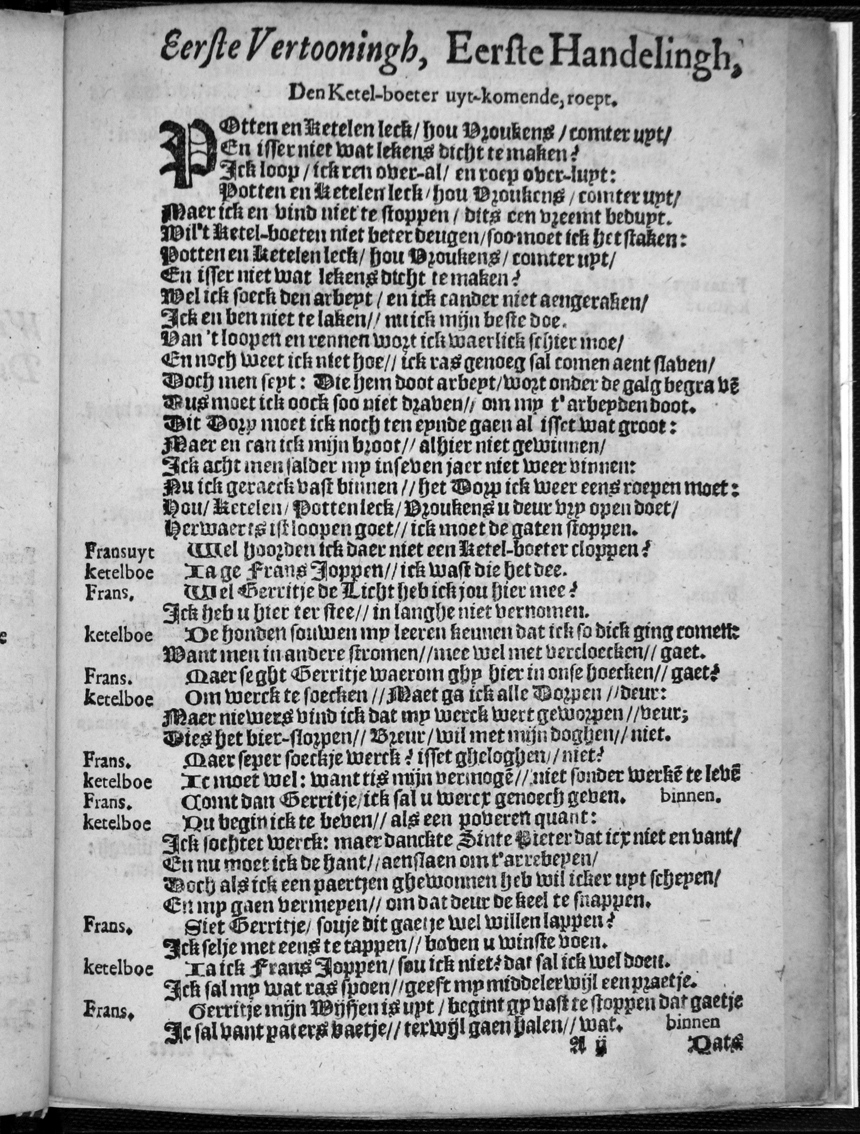 Eerste Vertooningh, Eerste Handelingh,
Den Ketel-boeter uyt-komende, roept.
POtten en Ketelen leck / hou Vroukens / comter uyt /
En isser niet wat lekens dicht te maken?
Ick loop / ick ren over-al / en roep over-luyt:
Potten en Ketelen leck / hou Vroukens / comter uyt /
Maer ick en vind niet te stoppen / dits een vreemt beduyt.
Wil't Ketel-boeten niet beter deugen / soo moet ick het staken:
Potten en Ketelen leck / hou Vroukens / comter uyt /
En isser niet wat lekens dicht te maken?
Wel ick soeck den arbeyt / en ick cander niet aengeraken /
Ick en ben niet te laken // nu ick mijn beste doe.
Van 't loopen en rennen wort ick waerlick schier moe /
En noch weet ick niet hoe // ick ras genoeg sal comen aent slaven /
Doch men seyt: Die hem doot arbeyt / wort onder de galg begra vē
Dus moet ick oock soo niet draven // om my t'arbeyden doot.
Dit Dorp moet ick noch ten eynde gaen al isset wat groot:
Maer en can ick mijn broot // alhier niet gewinnen /
Ick acht men salder my in seven jaer niet weer vinnen:
Nu ick geraeck vast binnen // het Dorp ick weer eens roepen moet:
Hou / Ketelen / Potten leck / Vroukens u deur vry open doet /
Herwaerts ist loopen goet // ick moet de gaten stoppen.
Fransuyt Wel hoorden ick daer niet een Ketel-boeter cloppen?
ketelboe Ia ge Frans Joppen // ick wast die het dee.
Frans. Wel Gerritje de Licht heb ick jou hier mee?
Ick heb u hier ter stee // in langhe niet vernomen.
ketelboe De honden souwen my leeren kennen dat ick so dick ging comen:
Want men in andere stromen // mee wel met vercloecken // gaet.
Frans. Maer seght Gerritje waerom ghy hier in onse hoecken // gaet?
ketelboe Om werck te soecken // Maet ga ick alle Dorpen // deur:
Maer niewers vind ick dat my werck wert geworpen // veur;
Dies het bier-slorpen // Breur / wil met mijn doghen // niet.
Frans. Maer seper soeckje werck? isset gheloghen // niet?
ketelboe Ic moet wel: want tis mijn vermogē // niet sonder werkē te levē
Frans. Comt dan Gerritje / ick sal u wercx genoech geven. binnen.
ketelboe Nu begin ick te beven // als een poveren quant:
Ick sochtet werck: maer danckte Sinte Pieter dat icx niet en vant /
En nu moet ick de hant // aenslaen om t'arrebeyen /
Doch als ick een paertjen ghewonnen heb wil icker uyt scheyen /
En my gaen vermeyen // om dat deur de keel te snappen.
Frans. Siet Gerritje / souje dit gaetje wel willen lappen?
Ick selje met eens te tappen // boven u winste voen.
ketelboe Ia ick Frans Joppen / sou ick niet? dat sal ick wel doen.
Ick sal my wat ras spoen // geeft my middelerwijl een praetje.
Frans. Gerritje mijn Wijfjen is uyt / begint gy vast te stoppen dat gaetje
Ic sal vant paters vaetje // terwijl gaen halen // wat. binnen
A ij Dats